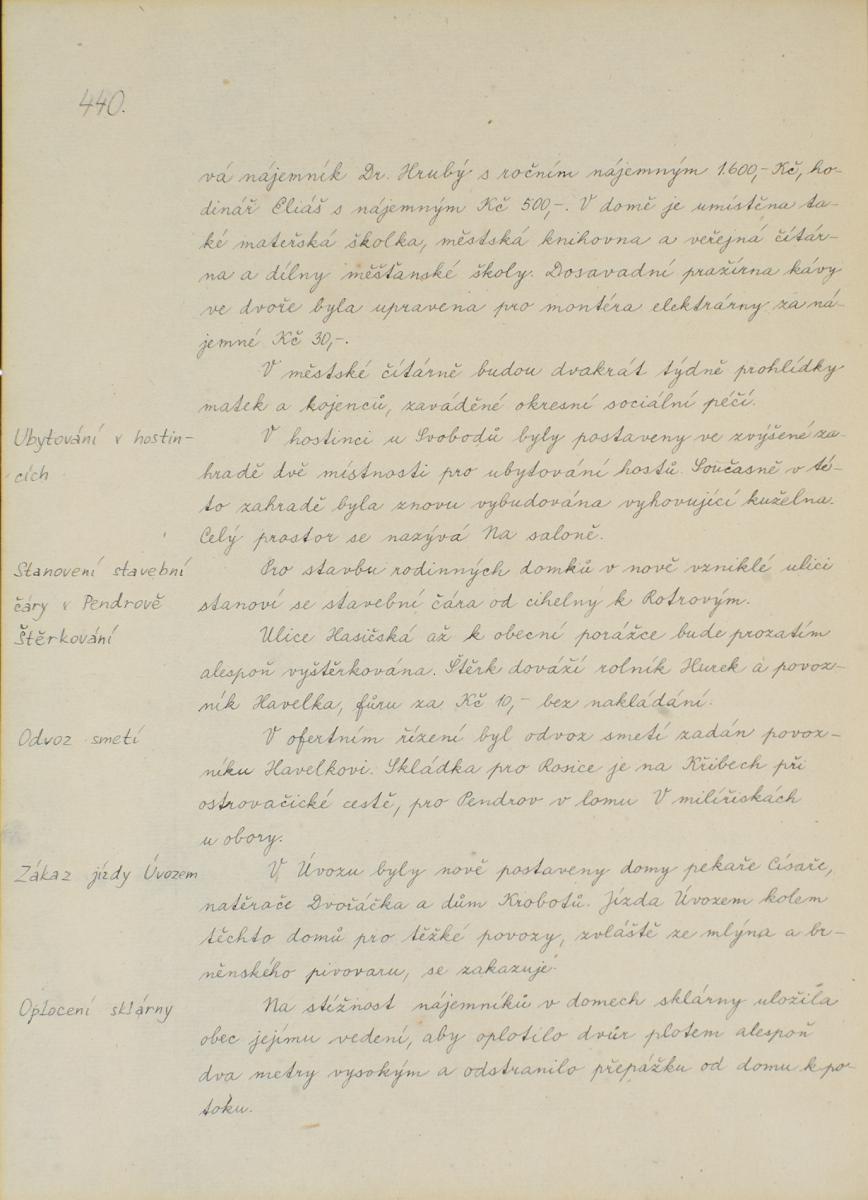 440.
vá nájemník Dr. Hrubý s ročním nájemným 1.600,- Kč, ho-
dinář Eliáš s nájemným Kč 500,-. V domě je umístěna ta-
ké mateřská školka, městská knihovna a veřejná čítár-
na a dílny měšťanské školy. Dosavadní pražírna kávy
ve dvoře byla upravena pro montéra elektrárny za ná-
jemné Kč 30,-.
V městské čítárně budou dvakrát týdně prohlídky
matek a kojenců, zaváděné okresní sociální péčí.
Ubytování v hostin-
cích
V hostinci u Svobodů byly postaveny ve zvýšené za-
hradě dvě místnosti pro ubytování hostů. Současně v té-
to zahradě byla znovu vybudována vyhovující kuželna.
Celý prostor se nazývá Na saloně.
Stanovení stavební
čáry v Pendrově
Pro stavbu rodinných domků v nově vzniklé ulici
stanoví se stavební čára od cihelny k Kotrovým.
Štěrkování
Ulice Hasičská až k obecní porážce bude prozatím
alespoň vyštěrkována. Štěrk dováží rolník Hurek a povoz-
ník Havelka, fůru za Kč 10,- bez nakládání.
Odvoz smetí
V ofertním řízení byl odvoz smetí zadán povoz-
níku Havelkovi. Skládka pro Rosice je na Křibech při
ostrovačické cestě, pro Pendrov v lomu V milířiskách
u obory.
Zákaz jízdy Úvozem
V Úvozu byly nově postaveny domy pekaře Císaře,
natěrače Dvořáčka a dům Krobotů. Jízda Úvozem kolem
těchto domů pro těžké povozy, zvláště ze mlýna a br-
něnského pivovaru, se zakazuje.
Oplocení sklárny
Na stížnost nájemníků v domech sklárny uložila
obec jejímu vedení, aby oplotilo dvůr plotem alespoň
dva metry vysokým a odstranilo přepážku od domu k po-
toku.